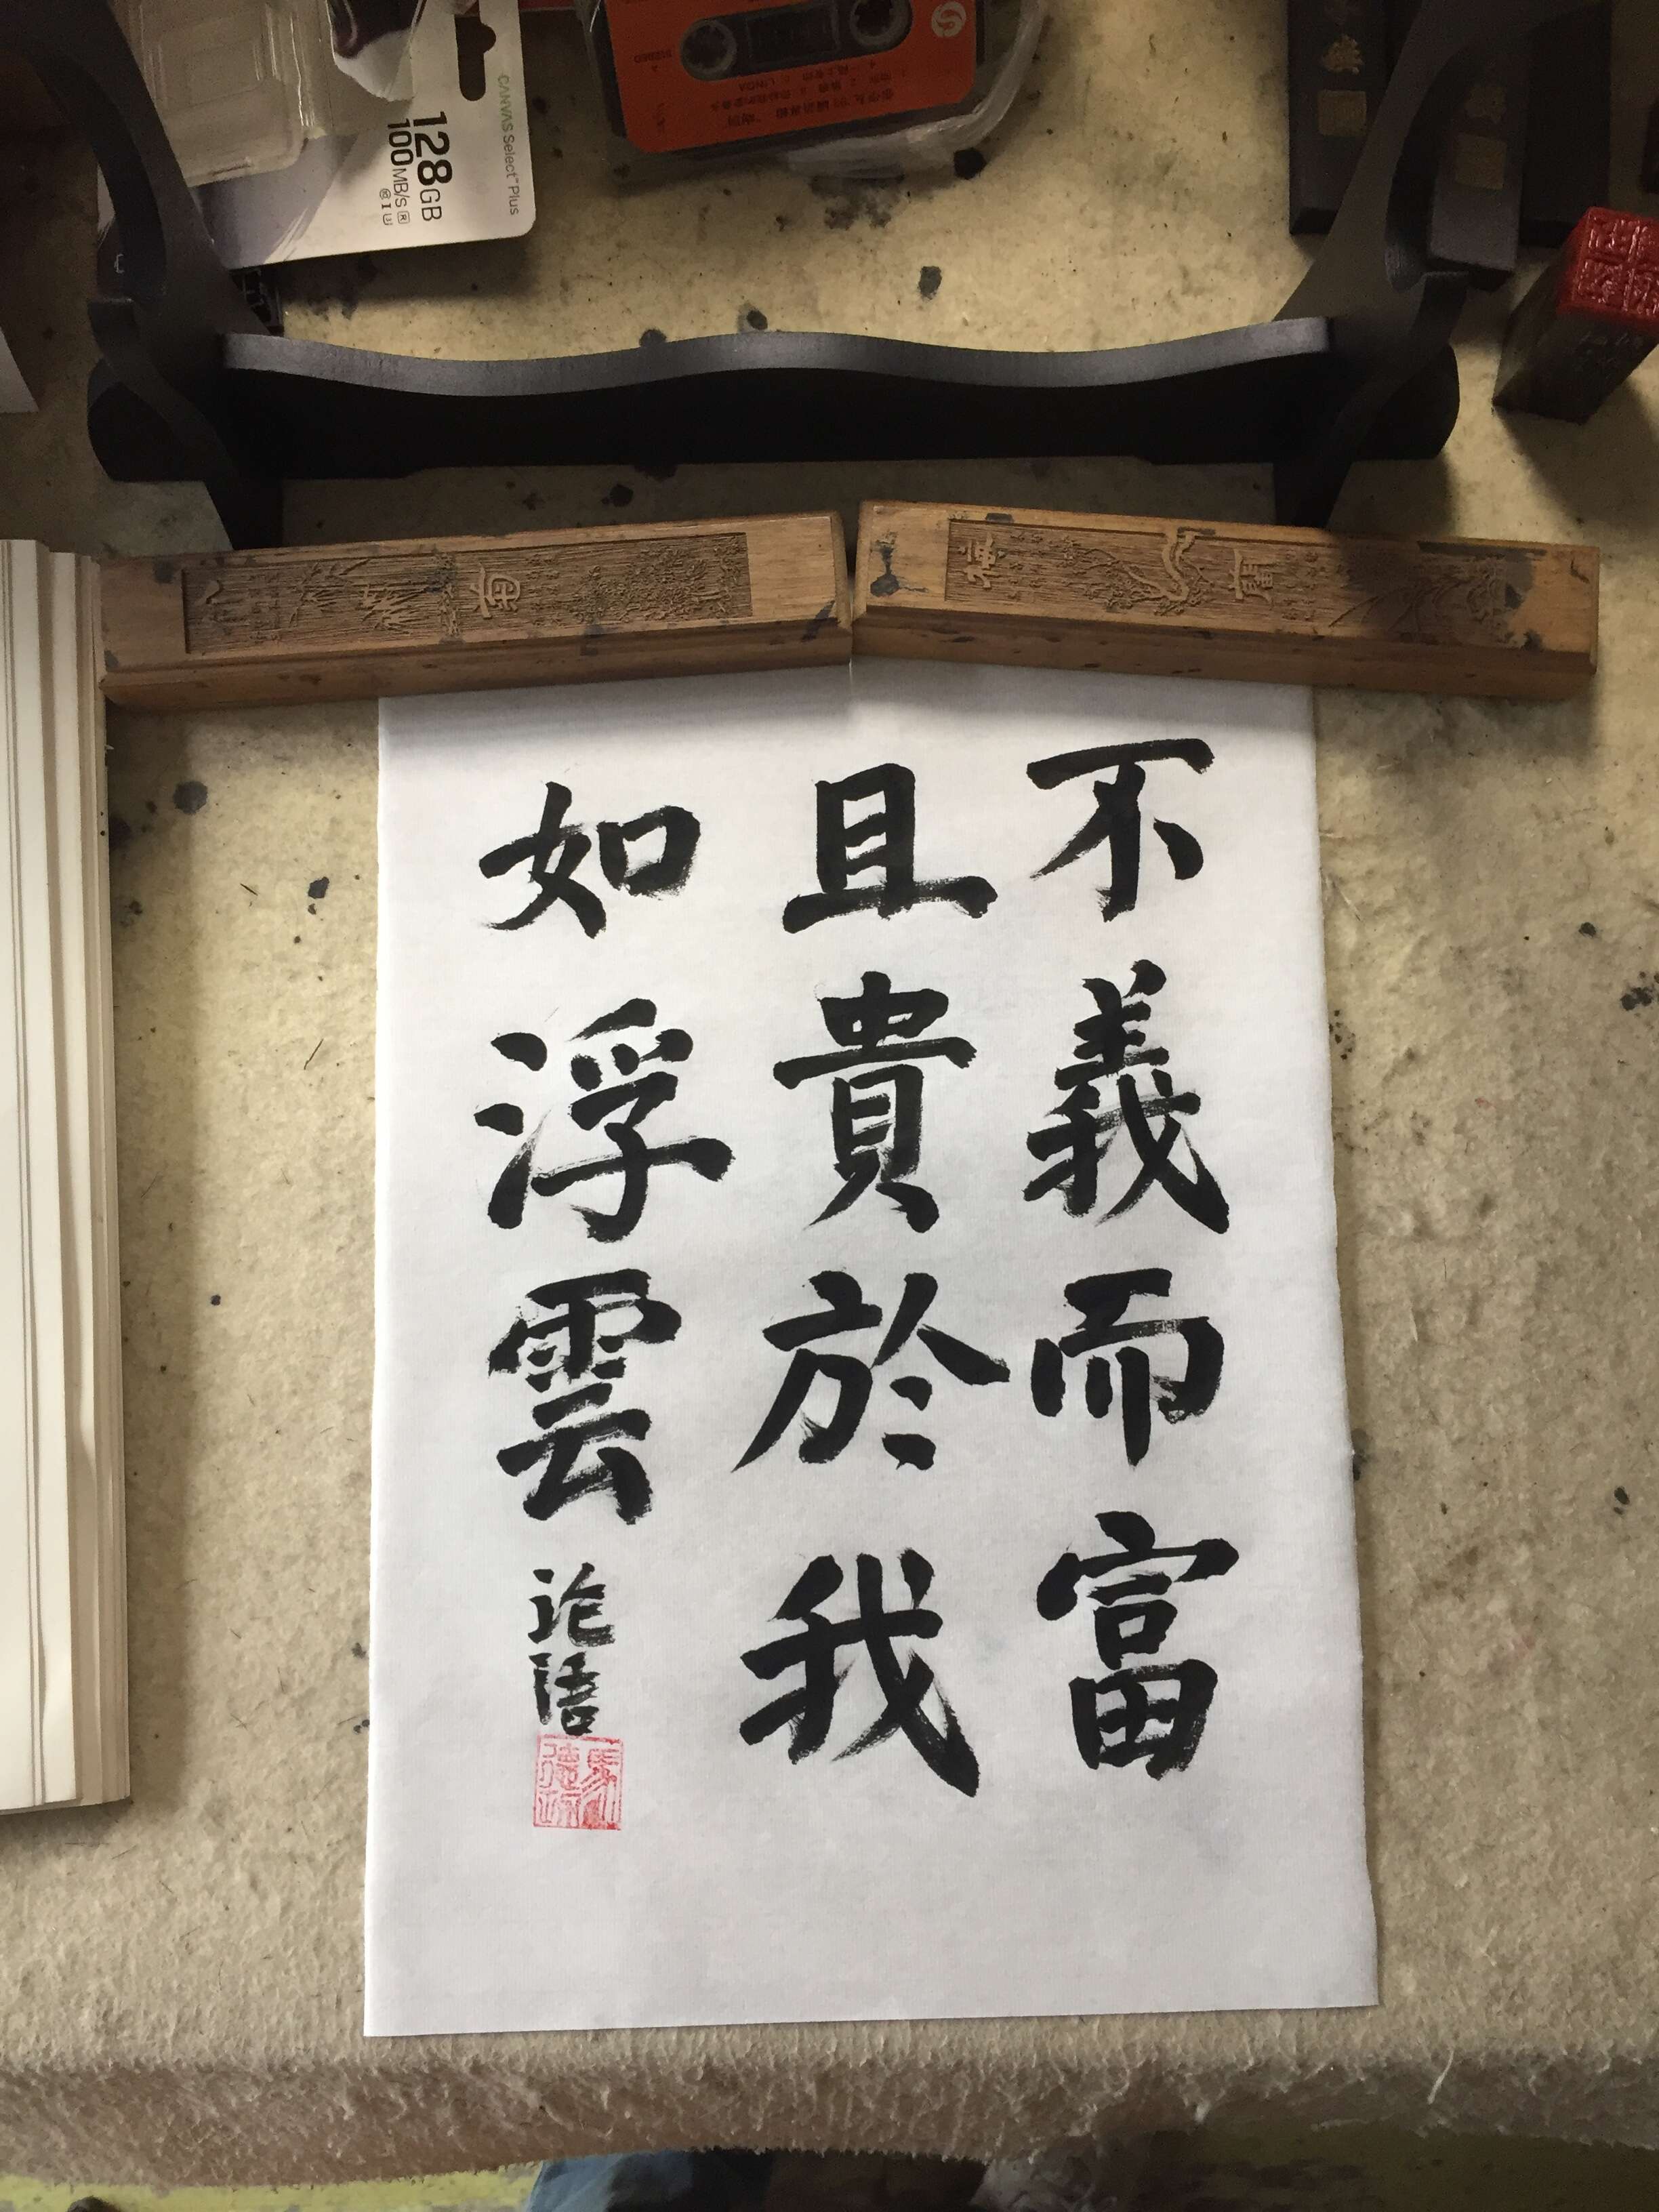 不義而富
且貴於我
如浮雲
论语
CANVAS Select Plus
128GB
100MB/s
梅
蘭